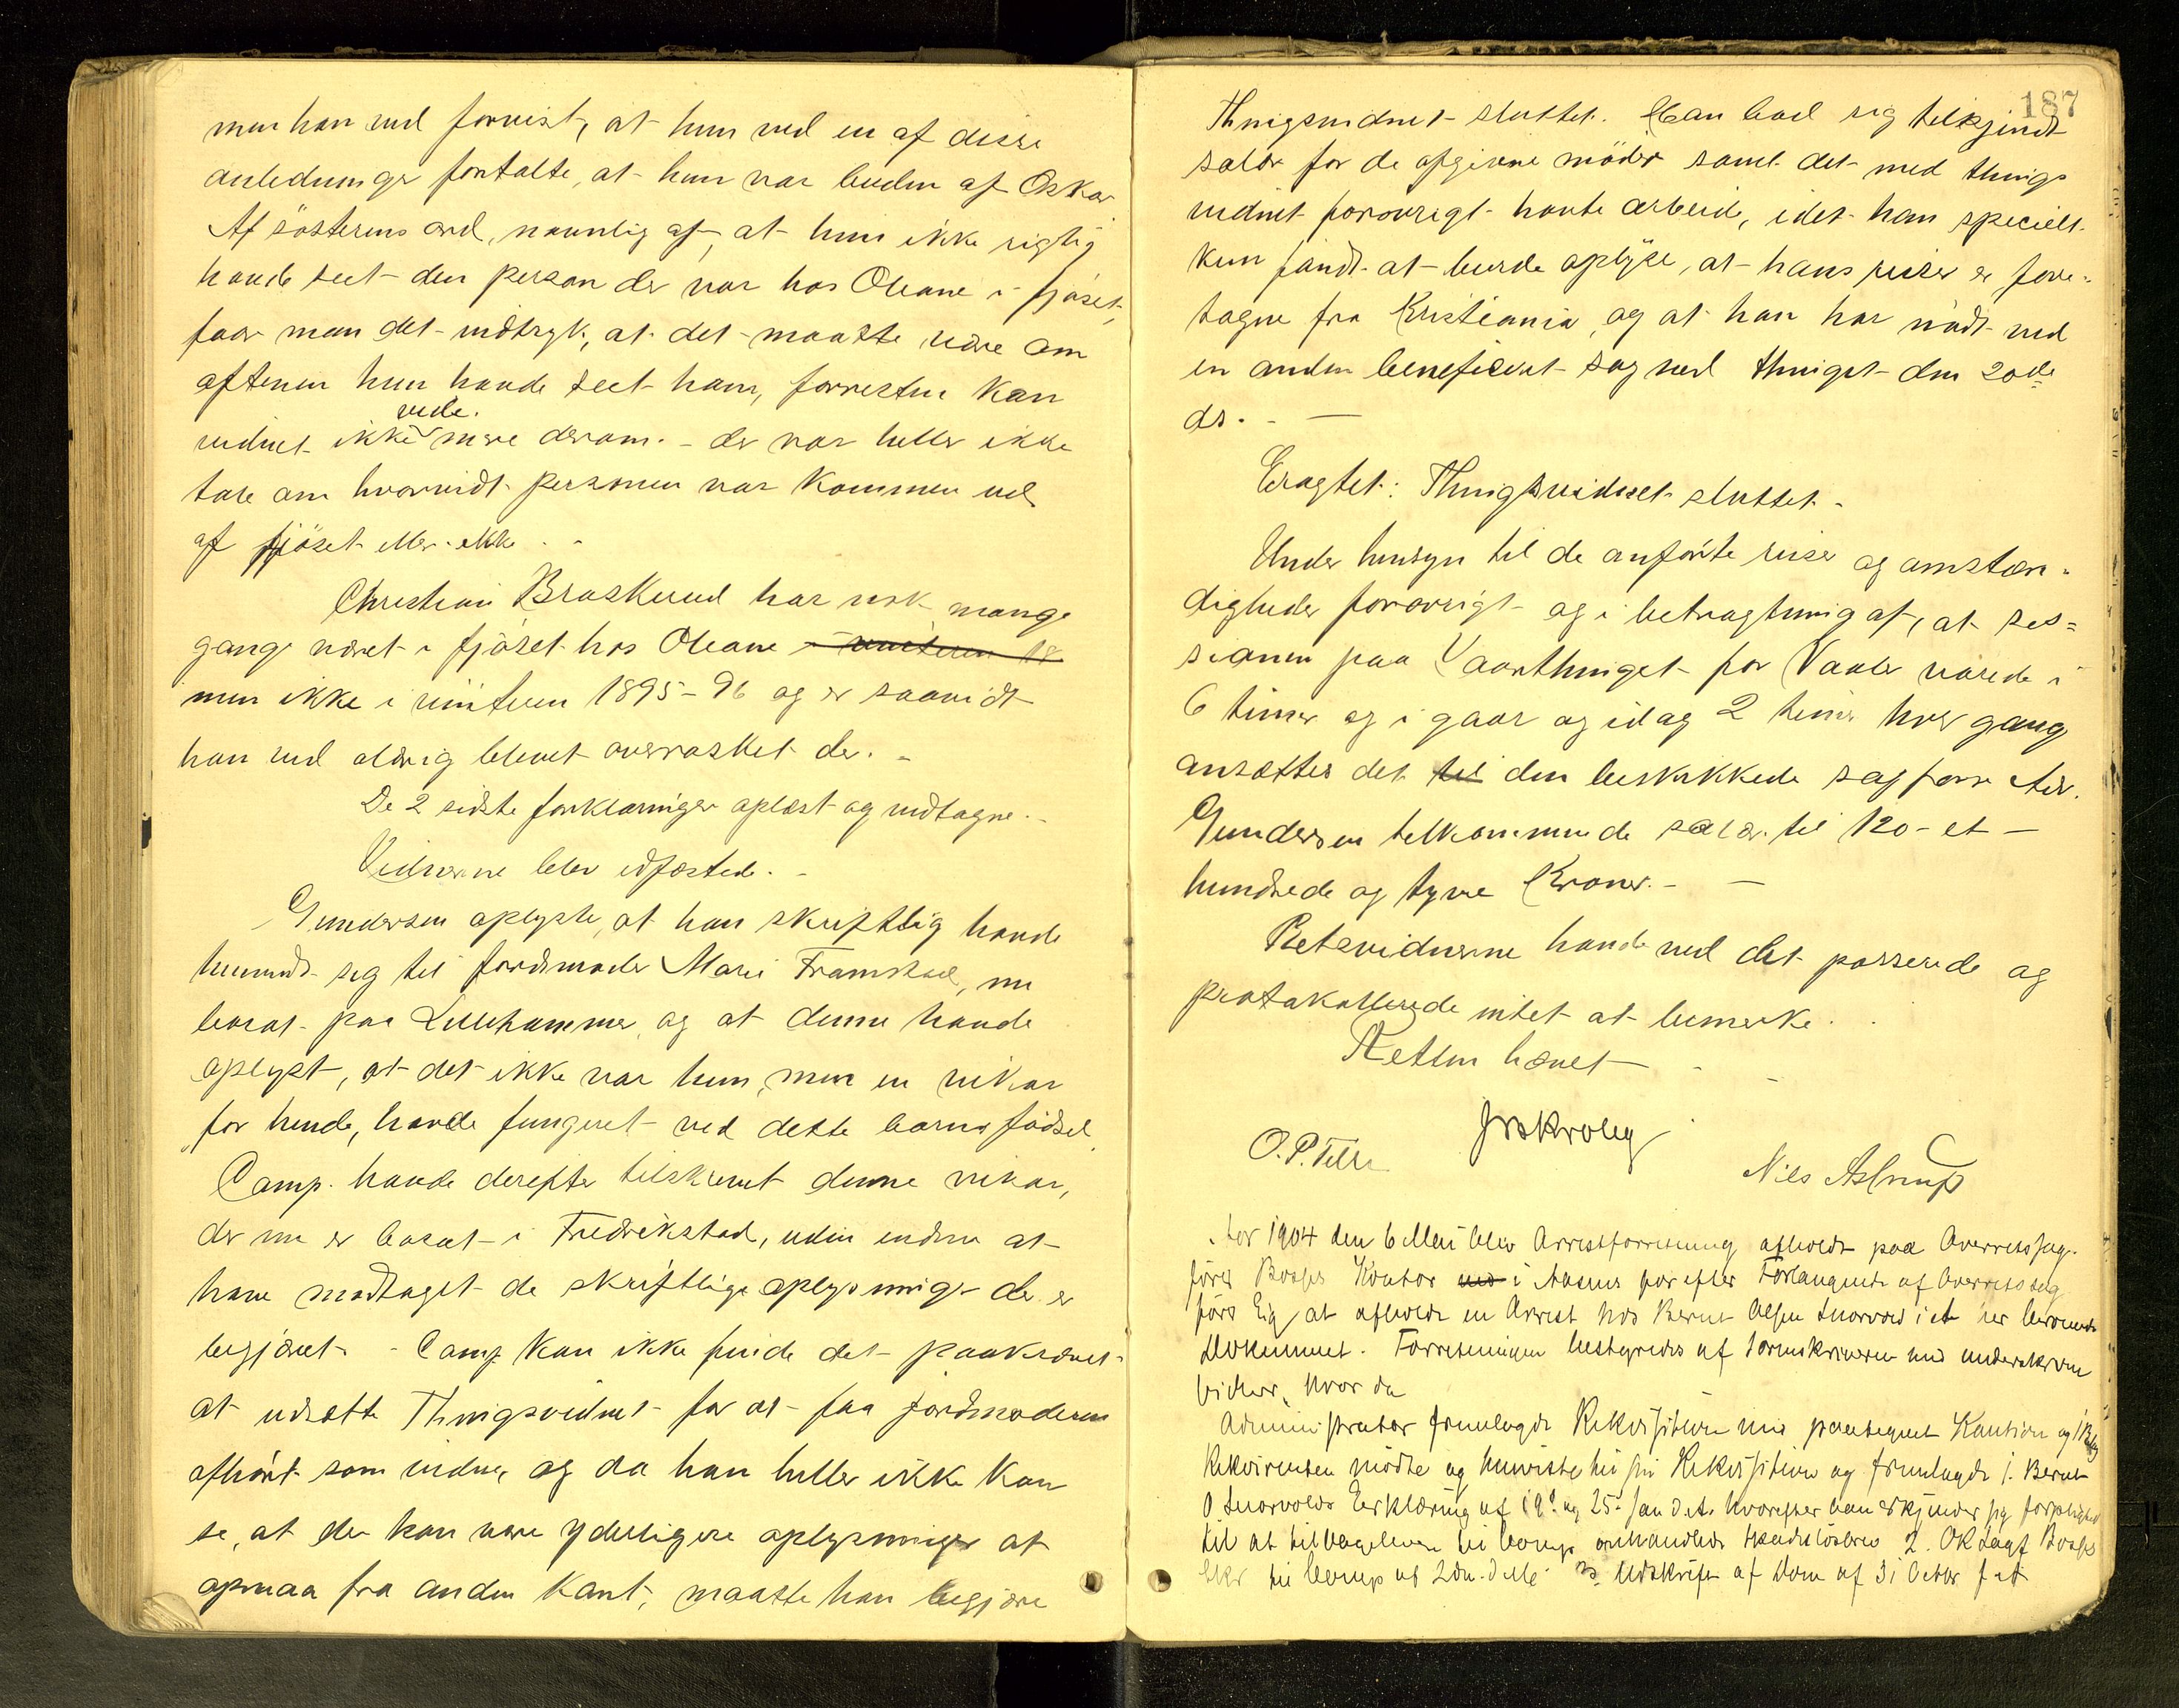 men han ved forvist, at hun ved en af disse
anledninger fortalte, at hun var buden af Oskar
Af søsterens ord, navnlig af, at hun ikke rigtig
havde seet den person der var hos Oleane i fjøset,
faar man det indtryk, at det maatte være om
aftenen hun havde seet ham, forresten kan
vide.
vidnet ikke mere derom. - der var heller ikke
tale om hvorvidt personen var kommen ud
af fjøset eller ikke. -
Christian Braskerud har nok mange
gange været i fjøset hos Oleane i vinteren 18
men ikke i vinteren 1895-96 og er saavidt
han ved aldrig blevet overrasket der. -
De 2 sidste forklaringer oplæst og vedtagne. -
Vidnerne blev edfæstede. -
Gundersen oplyste, at han skriftlig havde
henvendt sig til jordmoder Mari Framstad, nu
bosat paa Lillehammer, og at denne havde
oplyst, at det ikke var hun, men en vikar
for hende, havde fungeret ved dette barns fødsel,
Comp. havde derefter tilskrevet denne vikar,
der nu er bosat i Fredrikstad, uden endnu at
have modtaget de skriftlige oplysninger der er
begjæret. - Comp. kan ikke finde det paakrævet
at udsætte Thingsvidnet for at faa jordmoderen
afhørt som vidne, og da han heller ikke kan
se, at der kan være yderligere oplysninger at
opnaa fra anden kant, maatte han begjære
187
Thingsvidnet sluttet. Han bad sig tilkjendt
salær for de afgivne møder samt det med things
vidnet forøvrigt havte arbeid, idet han specielt
kun fandt at burde oplyse, at hans reiser er fore-
tagne fra Kristiania, og at han har mødt ved
en anden beneficeret sag ved thinget den 20de
ds. - —
Eragtet: Thingsvidnet sluttet. -
Under hensyn til de anførte reiser og omstæn-
digheder forøvrigt og i betragtning af, at ses=
sionen paa Vaarthinget for Vaaler varede i
6 timer og i gaar og idag 2 timer hver gang
ansættes det til den beskikkede sagfører Adv.
Gundersen tilkommende salær til 120 - et -
hundrede og tyve Kroner. - —
Retsvidnerne havde ved det passerede og
protokollerede intet at bemerke.
Retten hævet
O. P. 
Nils Astrup
Aar 1904 den 6 Mai blev Arrestforretning afholdt paa Overretssag-
fører Kontor ved i for efter Forlangende af Overretssag
fører at afholde en Arrest hos Bernt Olsen i et her beroende
Dokument. Forretningen bestyredes af Sorenskriveren med underskrevne
Vidner, hvor da
Administrator fremlagde Rekvisition med paategnet Kaution og 
Rekvirenten mødte og henviste til sin Rekvisition og fremlagde 1. Bernt
O. Erklæring af 19. og 25. Jan d.A. hvorefter han erkjender sig forpligtet
til at tilbagelevere til Comp omhandlede 2. 
til Comp af 2den d.M. 3. Udskrift af Dom af 31 Octbr f.A.